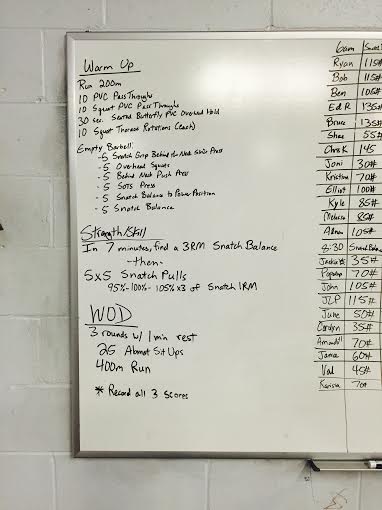 Warm Up
Run 200m
10 PVC Pass Throughs
10 Squat PVC Pass Throughs
30 sec. Seated Butterfly PVC Overhead Hold
10 Squat Therass Rotations (Each)
Empty Barbell:
-5 Snatch Grip Behind the Neck Strict Press
-5 Overhead Squats
-5 Behind Neck Push Press
-5 Sots Press
-5 Snatch Balance to Power Position
-5 Snatch Balance
Strength/Skill
In 7 minutes, find a 3RM Snatch Balance
-then-
5x5 Snatch Pulls
95%-100%-105%x3 of Snatch 1RM
WOD
3 rounds w/ 1 min rest
25 Abmat Sit Ups
400m Run
* Record all 3 scores
6am
Ryan 115#
Bob 115#
Ben 105#
Ed R 135#
Bruce 135#
Shae 55#
Chris K 145
Joni 30#
Kristine 70#
Elliot 100#
Kyle 85#
Melissa 85#
105#
8:30
Jackie 35#
70#
John 105#
JLP 115#
Julie 50#
Carolyn 35#
70#
Jamie 60#
Val 45#
Karissa 70#